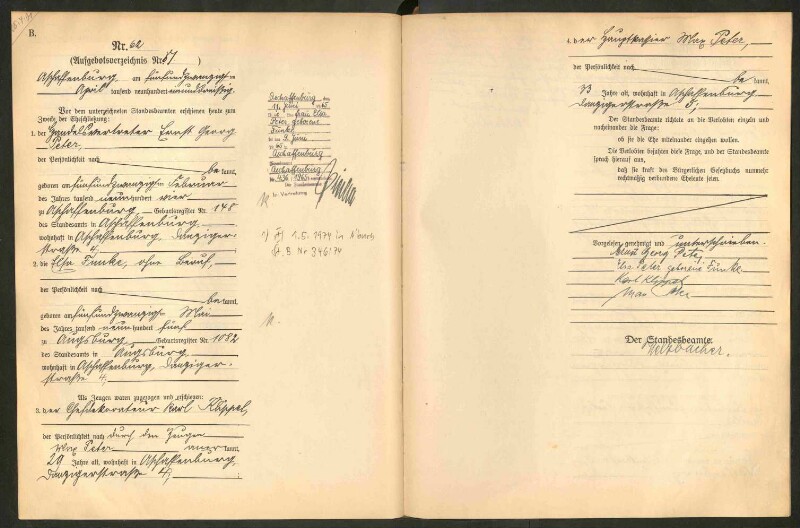 B.
Nr. 62
(Aufgebotsverzeichnis Nr. 87)
Aschaffenburg am fünfundzwanzigsten
April tausend neunhundert neununddreißig.
Vor dem unterzeichneten Standesbeamten erschienen heute zum
Zwecke der Eheschließung:
1. der Handelsvertreter Ernst Georg
Peter,
der Persönlichkeit nach
bekannt,
geboren am fünfundzwanzigsten Februar
des Jahres tausend neunhundert vier
zu Aschaffenburg Geburtsregister Nr. 148
des Standesamts in Aschaffenburg
wohnhaft in Aschaffenburg, Danziger-
straße 4,
2. die Elsa Funke, ohne Beruf,
der Persönlichkeit nach
bekannt,
geboren am fünfundzwanzigsten Mai
des Jahres tausend neunhundert fünf
zu Augsburg Geburtsregister Nr. 1082
des Standesamts in Augsburg
wohnhaft in Aschaffenburg, Danziger-
straße 4,
Als Zeugen waren zugezogen und erschienen:
3. der Chefdekorateur Karl Klöppel,
der Persönlichkeit nach durch den Zeugen
Max Peter anerkannt,
29 Jahre alt, wohnhaft in Aschaffenburg,
Danzigerstraße 4,
Aschaffenburg
11. Juni
Frau Elsa
Peter geborene
Funke
9. Juni
Aschaffenburg
Aschaffenburg
436/1965
In Vertretung
1.5.1974 in
St. B Nr 346/74
4. der Hauptkassier Max Peter,
der Persönlichkeit nach
bekannt,
33 Jahre alt, wohnhaft in Aschaffenburg
Danzigerstraße 5,
Der Standesbeamte richtete an die Verlobten einzeln und
nacheinander die Frage:
ob sie die Ehe miteinander eingehen wollen.
Die Verlobten bejahten diese Frage, und der Standesbeamte
sprach hierauf aus,
daß sie kraft des Bürgerlichen Gesetzbuchs nunmehr
rechtmäßig verbundene Eheleute seien.
Vorgelesen, genehmigt und unterschrieben.
Ernst Georg Peter
Elsa Peter geborene Funke
Karl Klöppel
Max Peter
Der Standesbeamte:
Weltzbacher.